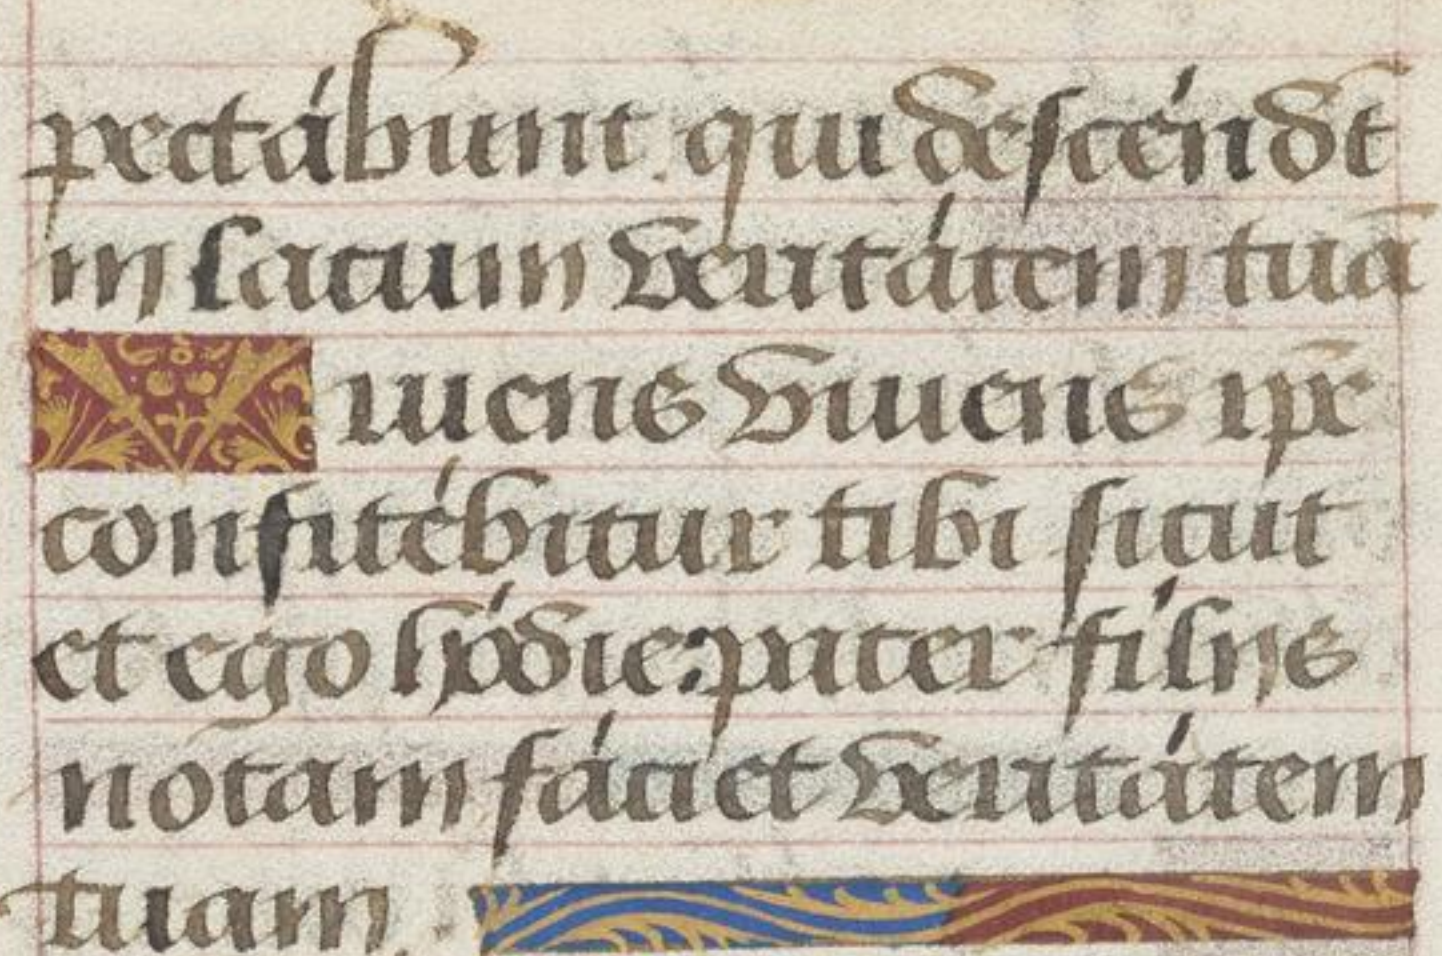 pectábunt. qui descéndt
in lacum veritátem tuā
Viuens viuens ipẽ
confitébitur tibi sicut
et ego hódie: pater filijs
notam fáciet veritátem
tuam.